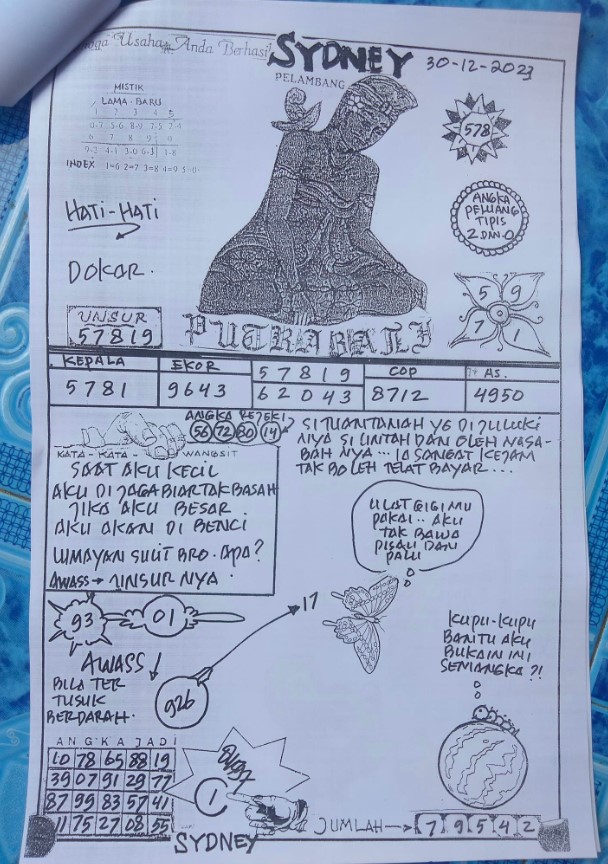 Usaha Anda Berhasil
SYDNEY
30-12-2023
PELAMBANG
MISTIK
LAMA-BARU
1 2 3 4 5
0-7 5-6 8-9 7-5 2-4
6 7 8 9 0
9-2 4-1 3-0 6-3 1-8
INDEX 1=6 2=7 3=8 4=9 5=0
HATI-HATI
DOKAR.
578
ANGKA
PELUANG
TIPIS
2 DAN 0
5 9
7 1
UNSUR
57819
PUTRA BALI
KEPALA EKOR 5 7 8 1 9 COP AS.
5781 9643 6 2 0 4 3 8712 4950
ANGKA REJEKI
56 72 80 14
KATA - KATA - WANGSIT
SAAT AKU KECIL
AKU DI JAGA BIAR TAK BASAH
JIKA AKU BESAR
AKU AKAN DI BENCI
LUMAYAN SULIT BRO. APA?
AWASS → UNSUR NYA
SI TUAN TANAH YG DI JULUKI
NYA SI LINTAH DAN OLEH NASA-
BAH NYA ... IA SANGAT KEJAM
TAK BOLEH TELAT BAYAR ...
ULAT GIGI MU
PAKAI.. AKU
TAK BAWA
PISAU DAN
PALU
93
01
17
AWASS!
BILA TER
TUSUK
BERDARAH.
926
KUPU-KUPU
BANTU AKU
BUKAIN INI
SEMANGKA ?!
ANGKA JADI
10 78 65 88 19
39 07 91 29 77
87 99 83 57 41
11 75 27 08 55
1
JUMLAH → 7 9 5 4 2
SYDNEY